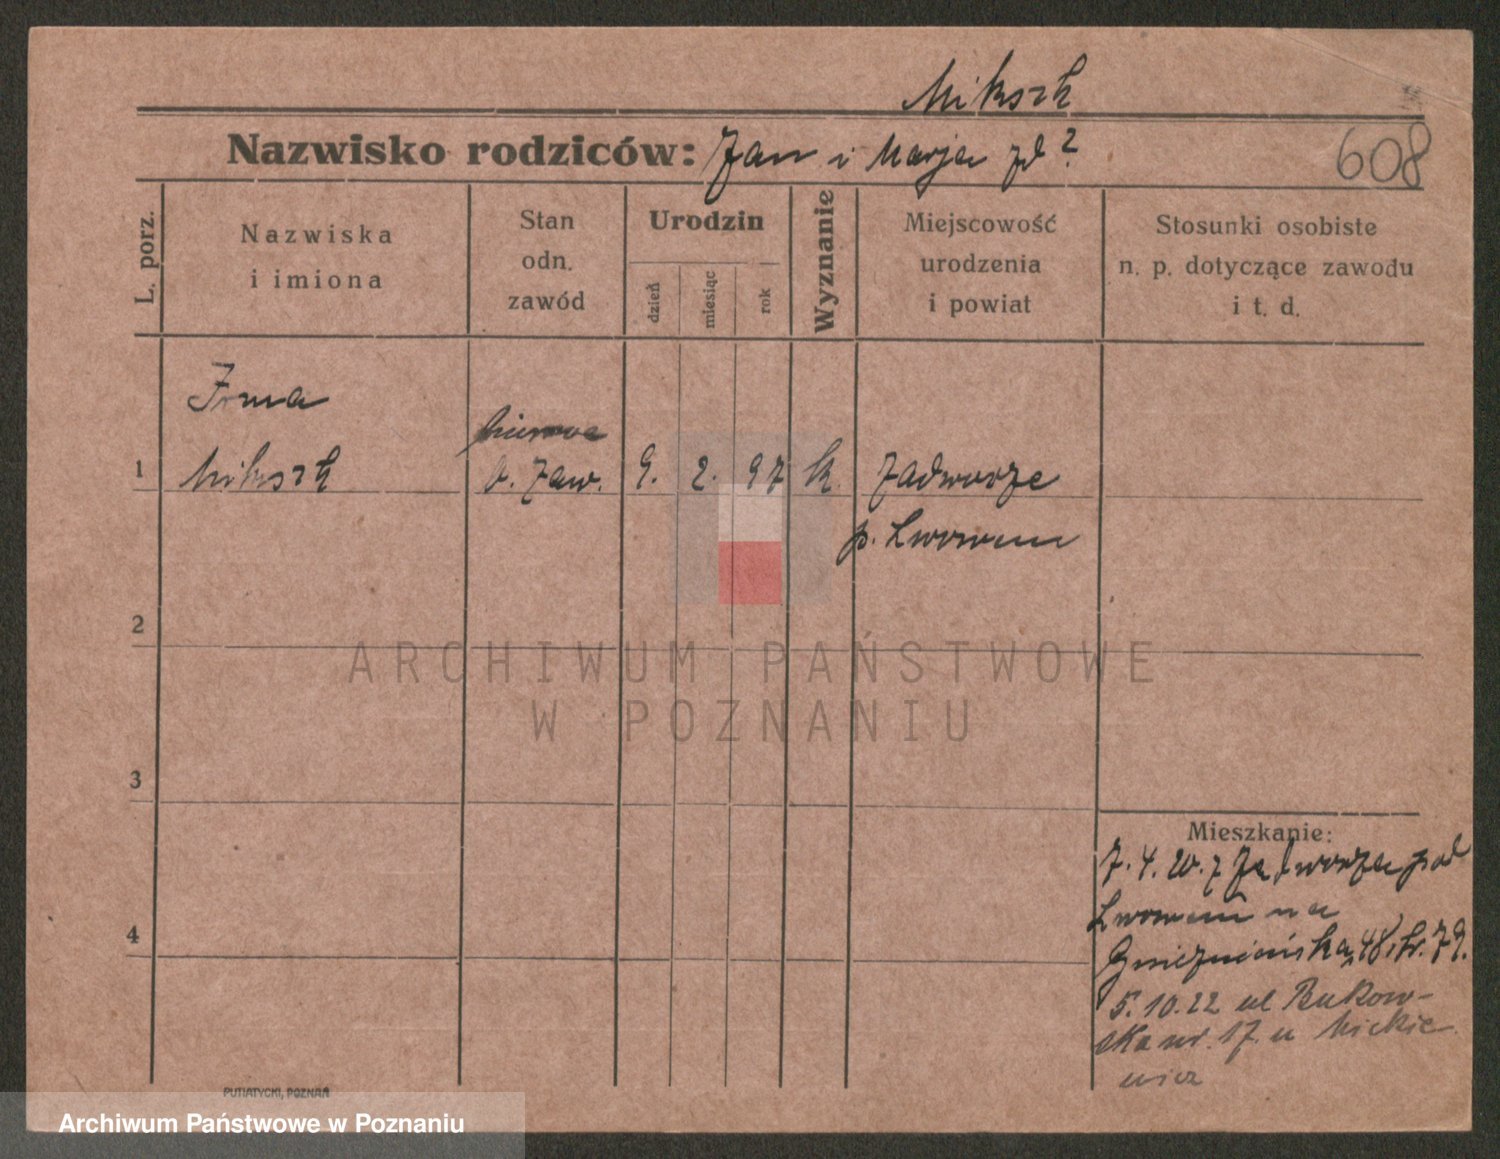 Mikszk
Nazwisko rodziców: Jan i Marja zd ?
608
L. porz.
Nazwiska
i imiona
Stan
odn.
zawód
Urodzin
dzień
miesiąc
rok
Wyznanie
Miejscowość
urodzenia
i powiat
Stosunki osobiste
n. p. dotyczące zawodu
i t. d.
Irma
1 Mikszk b. zaw. 9. 2. 97 k. Zadworze
p. Lwowem
2
3
4
Mieszkanie:
7. 4. 20. z Zadworza pod
Lwowem na
Gnieźnieńska 48
5. 10. 22 ul Bukow-
ska nr. 17. u Mickie
wicz
PUTIATYCKI, POZNAŃ
ARCHIWUM PAŃSTWOWE
W POZNANIU
Archiwum Państwowe w Poznaniu